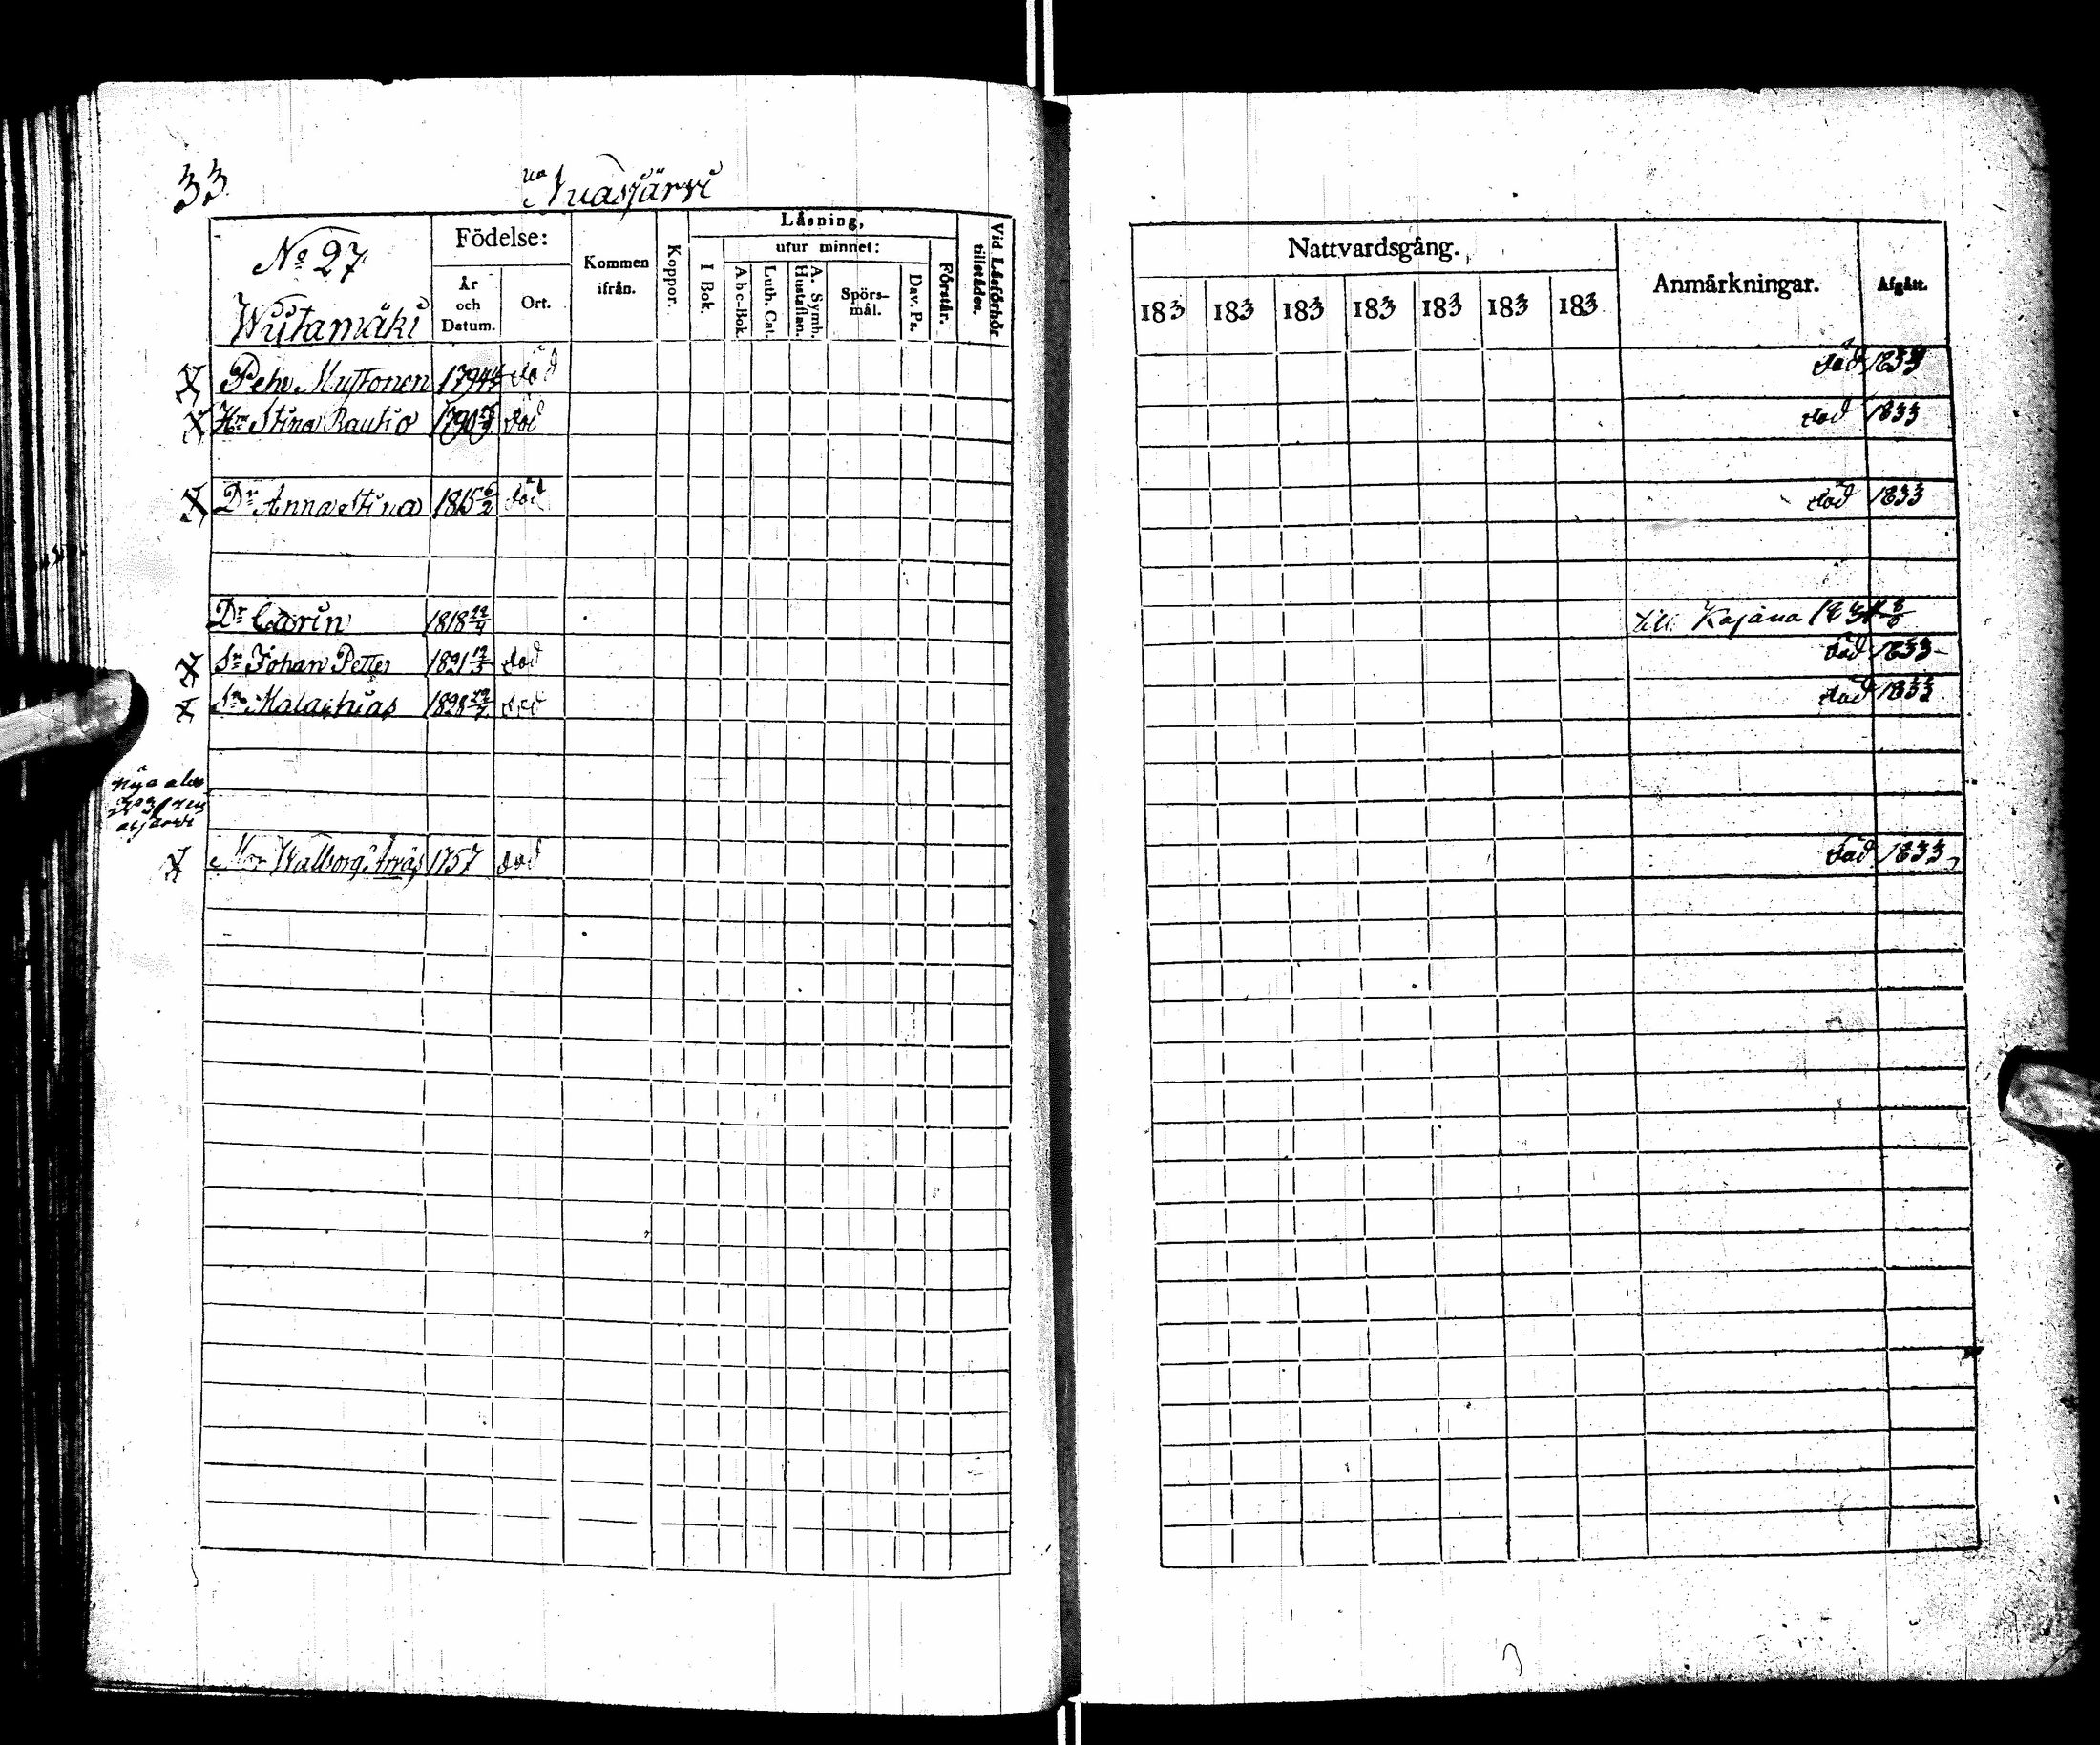 33
Nuasjärvi
No 27
Wuotamäki
Födelse:
År och Datum.
Ort.
Kommen ifrån.
Koppor.
Läsning,
utur minnet:
I Bok.
Abc-Bok
Luth. Cat.
A. Symb. Hustaflan.
Spörs-mål.
Dav. Ps.
Förstår.
Vid Läsförhör tillstädes.
Nattvardsgång.
183 183 183 183 183 183 183
Anmärkningar.
Afgått.
Pehr Myttonen 1794 död död 1833
Hu Stina Rautio 1790 död död 1833
Dr Anna Stina 1815 6/2 död död 1833
Dr Carin 1818 till Kajana
Sn Johan Petter 1821 död död 1833
Sn Malachias 1828 död död 1833
nya
Mor Walborg 1757 död död 1833